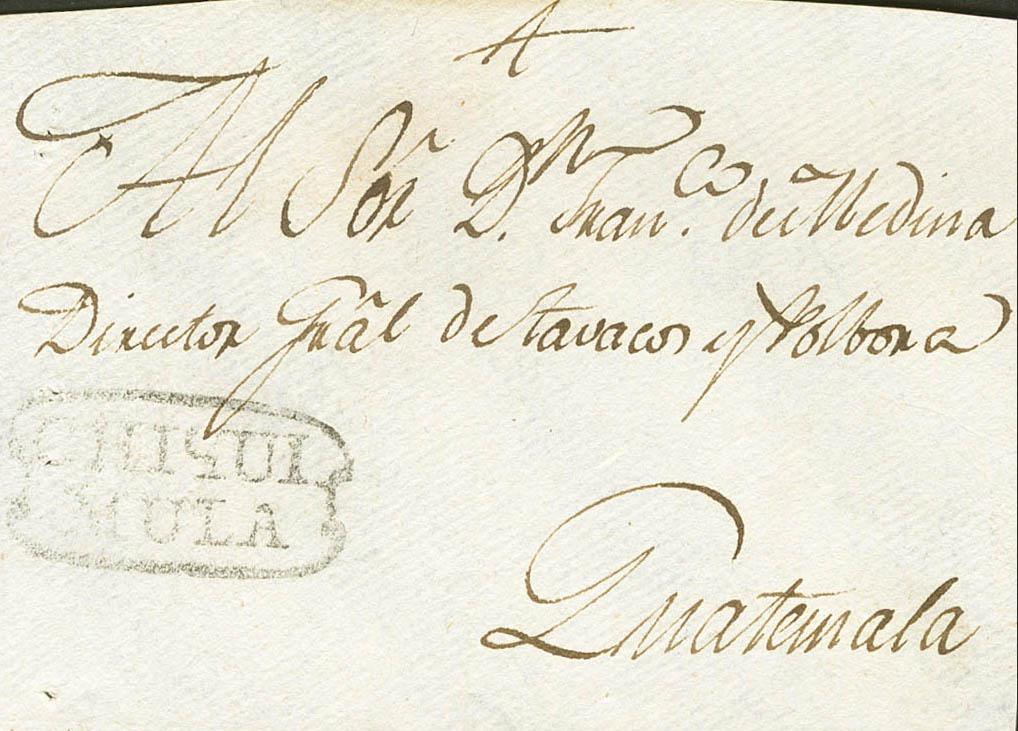 A
Al Sõr D.n Fran.co de Medina
Director Grãl de tavacos y Polbora
CHISUL
MULA
Guatemala